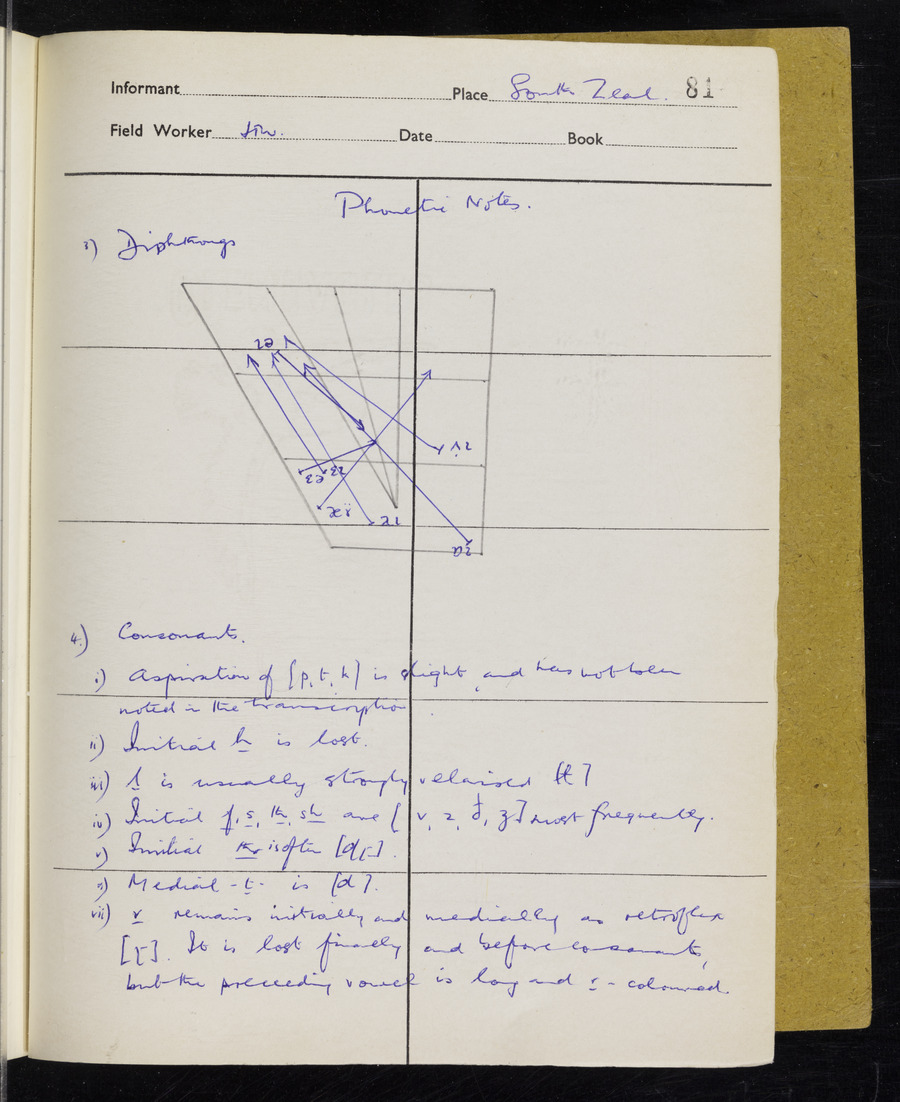 Informant Place South Zeal. 81
Field Worker Date Book
Phonetic Notes.
3) Diphthongs
4.) Consonants.
i) Aspiration of [p, t, k] is slight, and has not been
noted in the transcription
ii) Initial h is lost.
iii) l is usually strongly velarised [ɫ]
iv) Initial f, s, th, sh are [v, z, ð, ʒ] most frequently.
v) Initial thr is often [dɽ].
vi) Medial -t- is [d].
vii) r remains initially and medially as retroflex
[ɽ]. It is lost finally and before consonants,
but the preceding vowel is long and r-coloured.